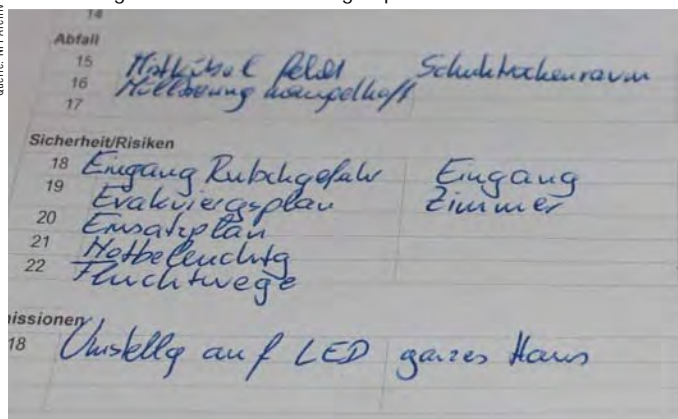 14
Abfall
15 fehlt Schuhtrockenraum
16 mangelhaft
17
Sicherheit/Risiken
18 Eingang Rutschgefahr Eingang
19 Evakuiergsplan Zimmer
20 Einsatzplan
21 Notbeleuchtg
22 Fluchtwege
issionen
18 Umstellg auf LED ganzes Haus